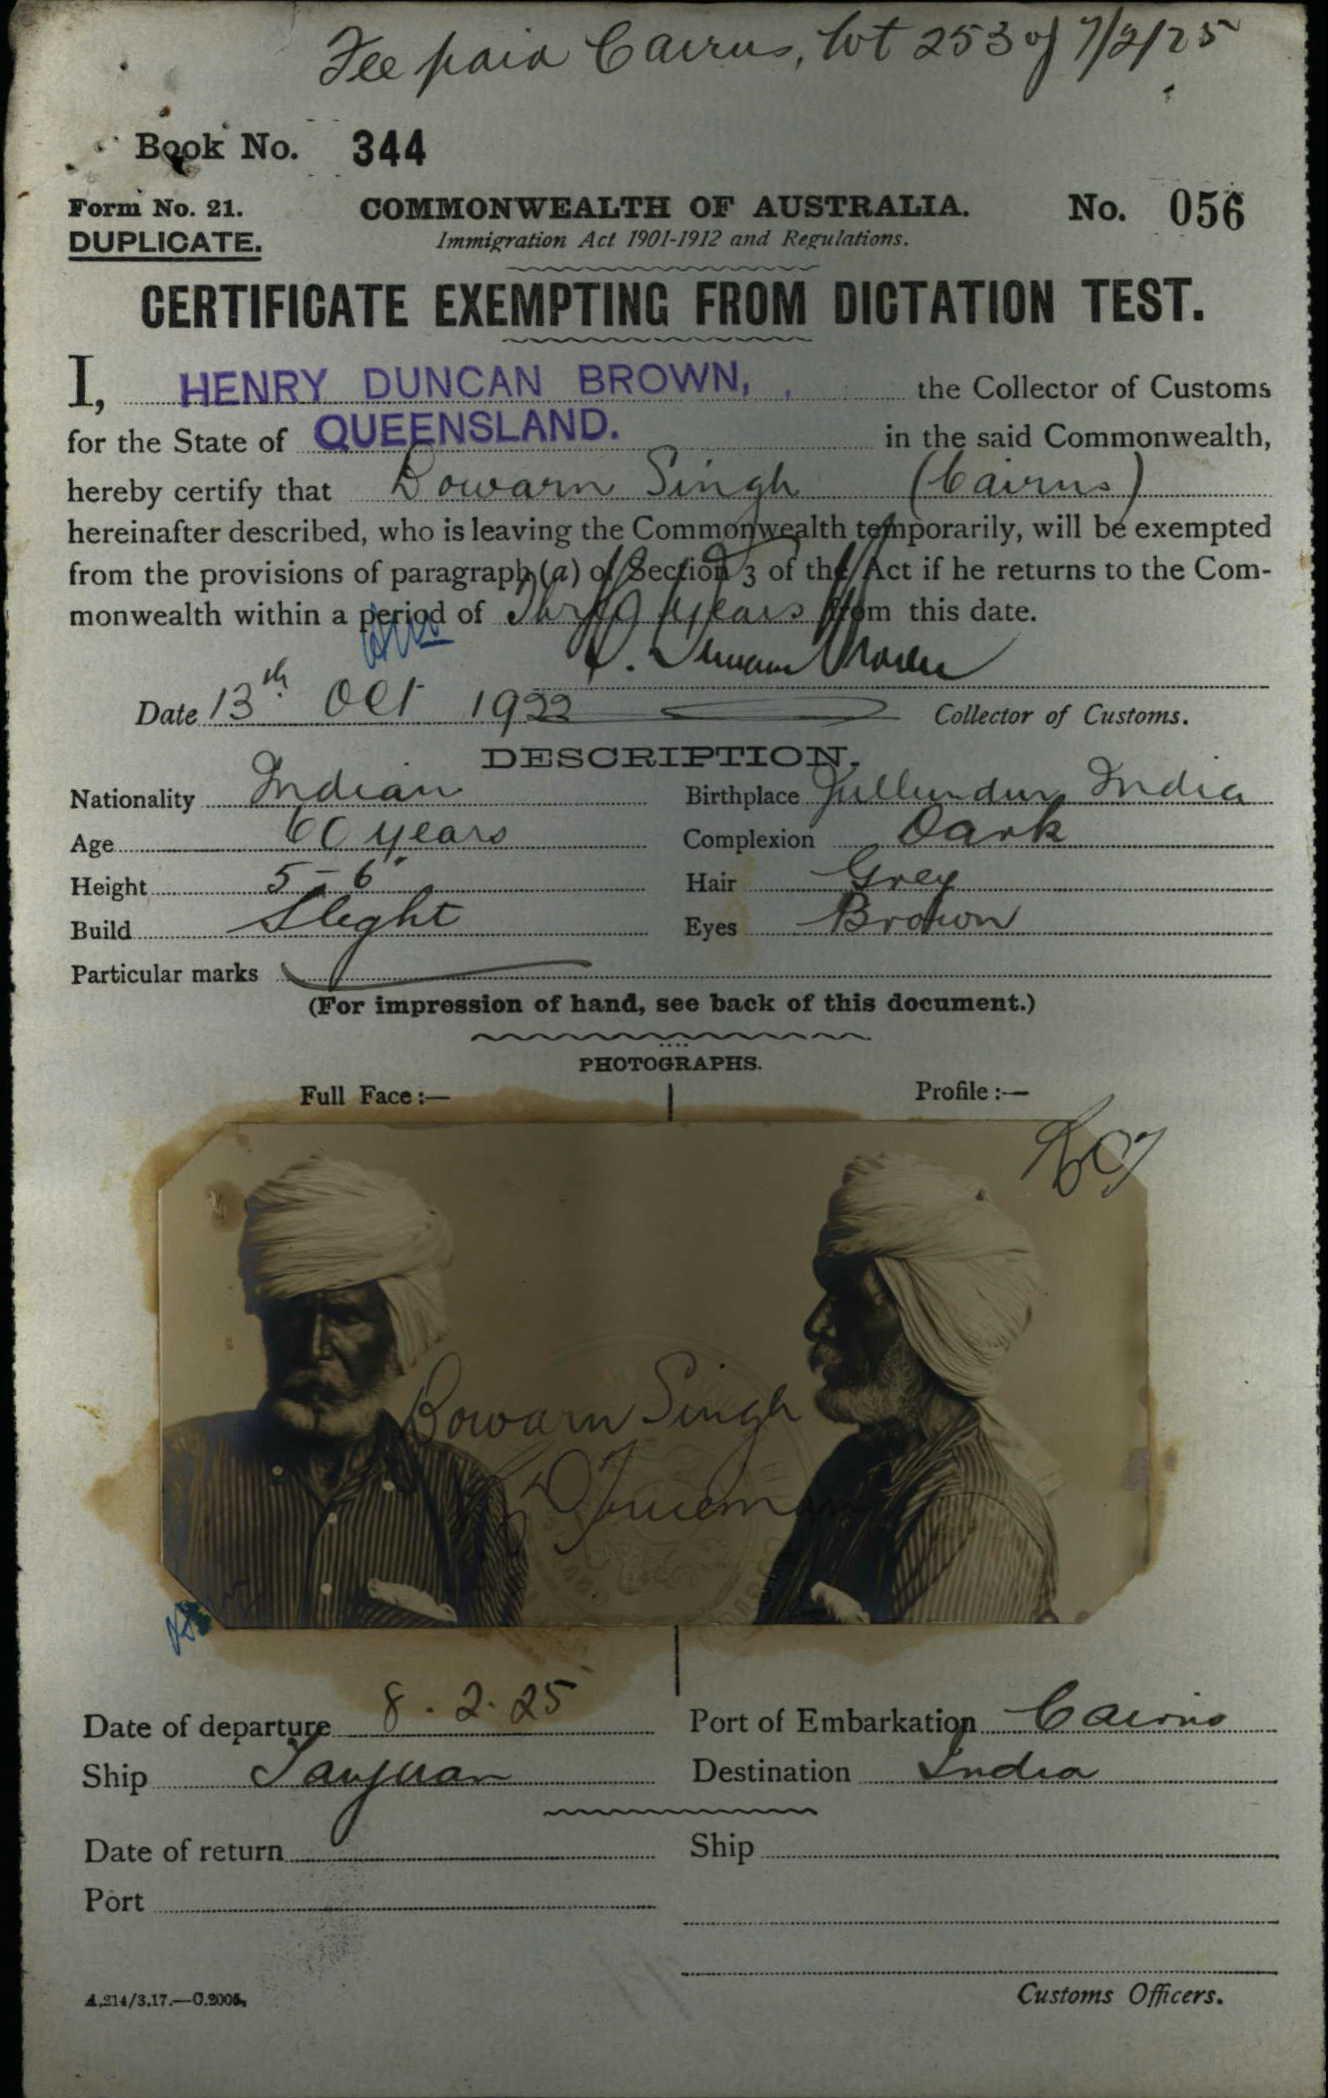 Fee paid Cairns, lot 253 of 7/2/25
Book No. 344
Form No. 21. COMMONWEALTH OF AUSTRALIA. No. 056
DUPLICATE. Immigration Act 1901-1912 and Regulations.
CERTIFICATE EXEMPTING FROM DICTATION TEST.
I, HENRY DUNCAN BROWN, the Collector of Customs
for the State of QUEENSLAND. in the said Commonwealth,
hereby certify that Dowarn Singh (Cairns)
hereinafter described, who is leaving the Commonwealth temporarily, will be exempted
from the provisions of paragraph (a) of Section 3 of the Act if he returns to the Com-
monwealth within a period of Three years from this date.
H. Duncan Brown
Date 13th Oct 1922 Collector of Customs.
DESCRIPTION.
Nationality Indian Birthplace Jullundur India
Age 60 years Complexion Dark
Height 5-6" Hair Grey
Build Slight Eyes Brown
Particular marks
(For impression of hand, see back of this document.)
PHOTOGRAPHS.
Full Face :— Profile :—
Dowarn Singh
Date of departure 8.2.25 Port of Embarkation Cairns
Ship Taiyuan Destination India
Date of return Ship
Port
A.214/3.17.—C.2005. Customs Officers.